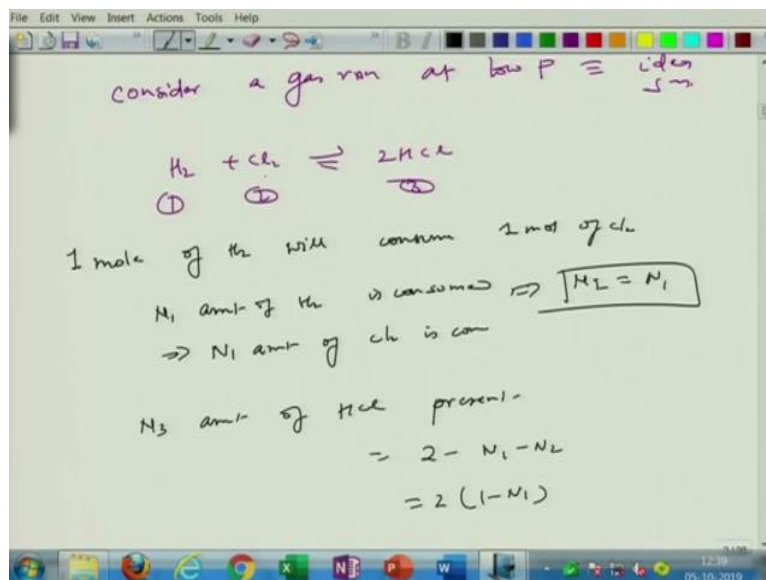 File Edit View Insert Actions Tools Help
consider a gas rxn at low P ≡ iden
H₂ + Cl₂ ⇌ 2HCl
① ② ③
1 mole of H₂ will consume 1 mol of Cl₂
N₁ amt of H₂ is consumed ⇒ N₂ = N₁
⇒ N₁ amt of Cl₂ is con
N₃ amt of HCl present.
= 2 - N₁ - N₂
= 2 (1-N₁)
12:39
05-10-2019